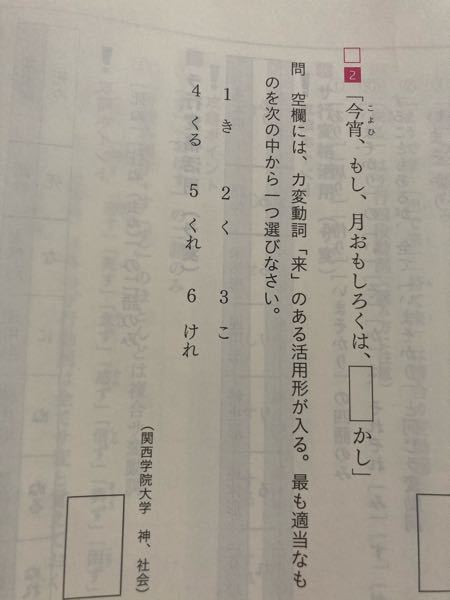 2 「今宵、もし、月おもしろくは、□かし」
こよひ
問 空欄には、カ変動詞「来」のある活用形が入る。最も適当なも
のを次の中から一つ選びなさい。
1 き 2 く 3 こ
4 くる 5 くれ 6 けれ
（関西学院大学 神、社会）